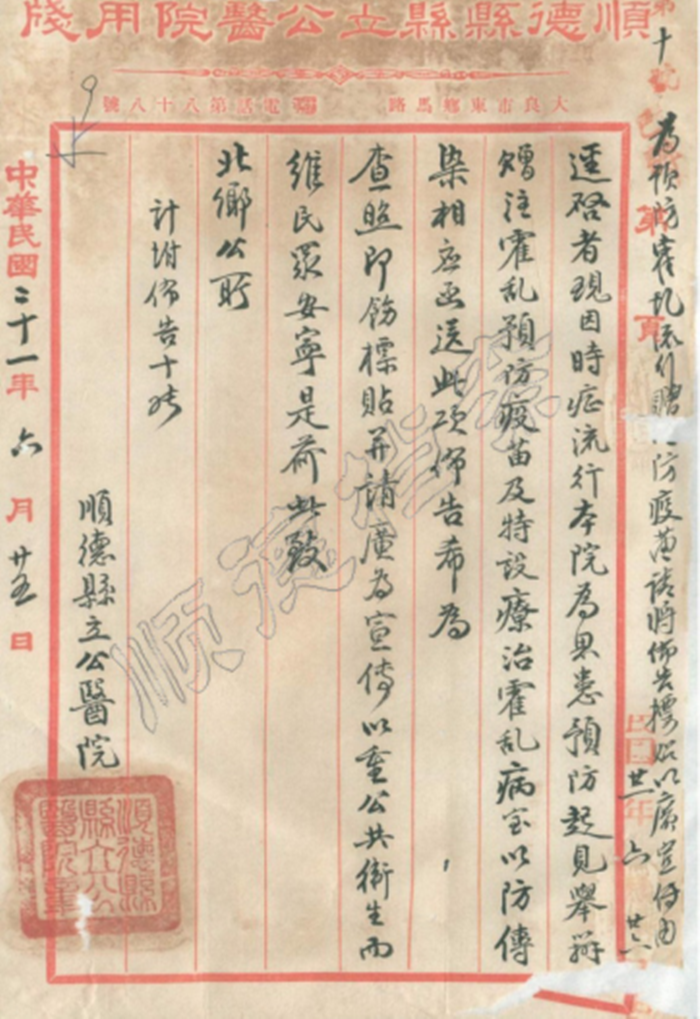 順德縣縣立公醫院用牋
大良市東鄉馬路 電話第八十八號
為預防霍亂流行贈注防疫苗請將佈告標貼以廣宣傳由
逕啓者現因時症流行本院為思患預防起見舉辦
贈注霍乱預防疫苗及特設療治霍乱病室以防傳
染相应函送此項佈告希為
查照即飭標貼并請廣為宣傳以重公共衛生而
維民眾安寧是荷此致
北鄉公所
計坿佈告十张
順德縣立公醫院
中華民國二十一年六月廿五日
順德縣立公醫院章
顺德档案